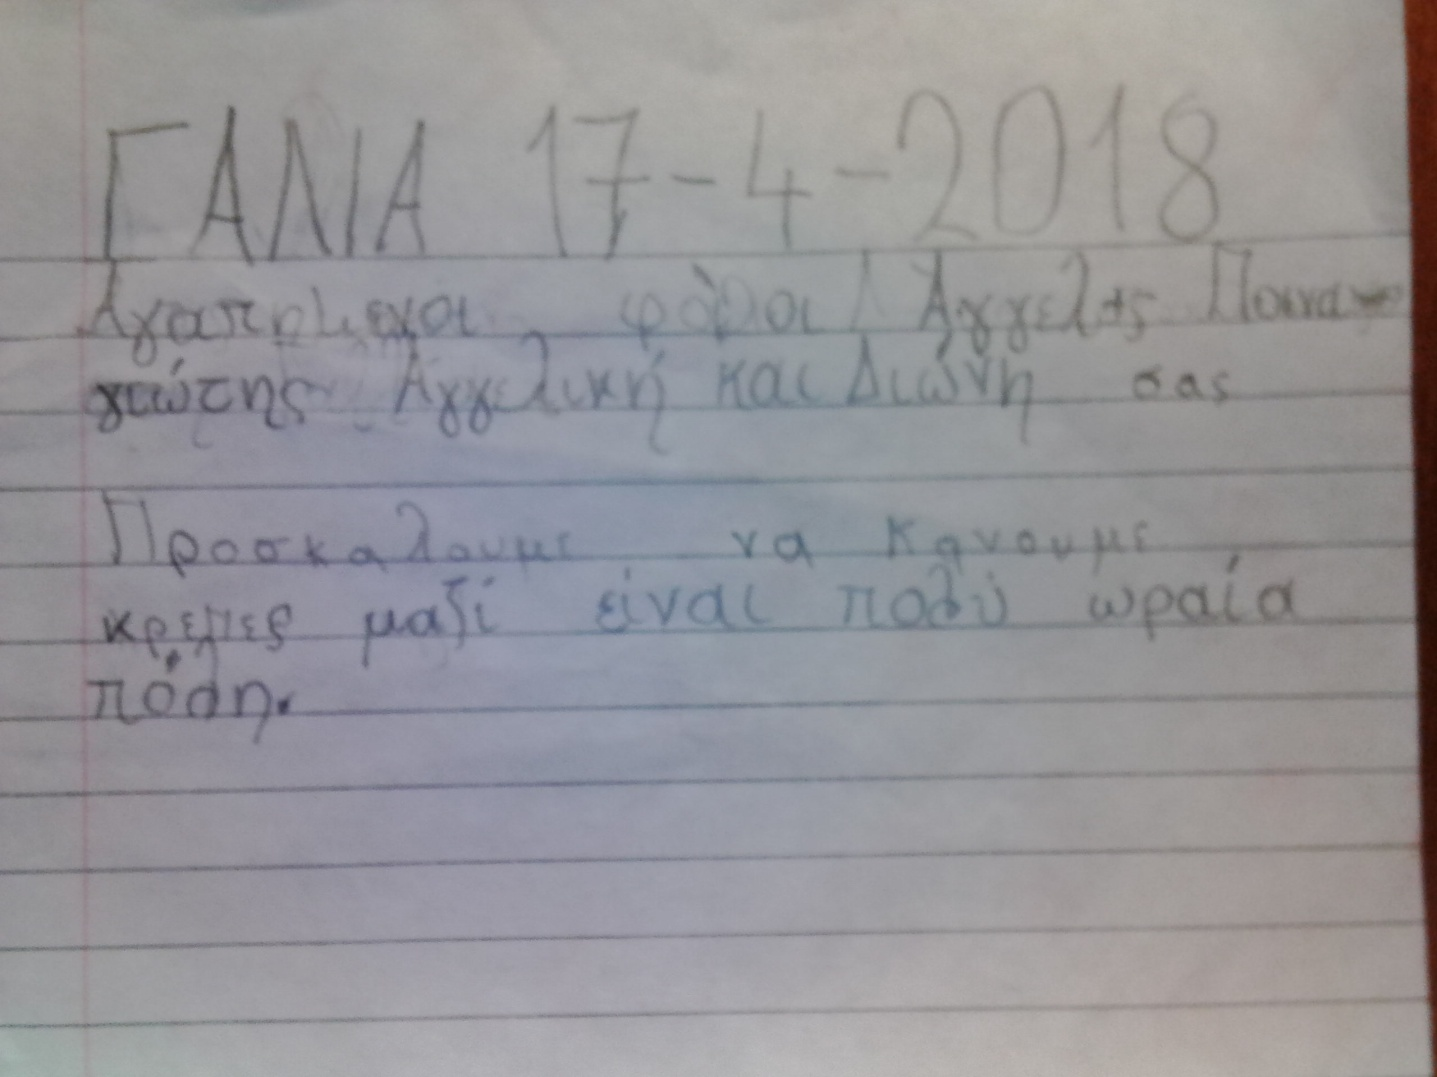 ΓΑΝΙΑ 17-4-2018
Αγαπημενοι φίλοι Άγγελος Πανα
γιώτης Αγγελική και Διώνη σας
Προσκαλουμε να κανουμε
κρεπες μαζί είναι πολύ ωραία
πόλη.